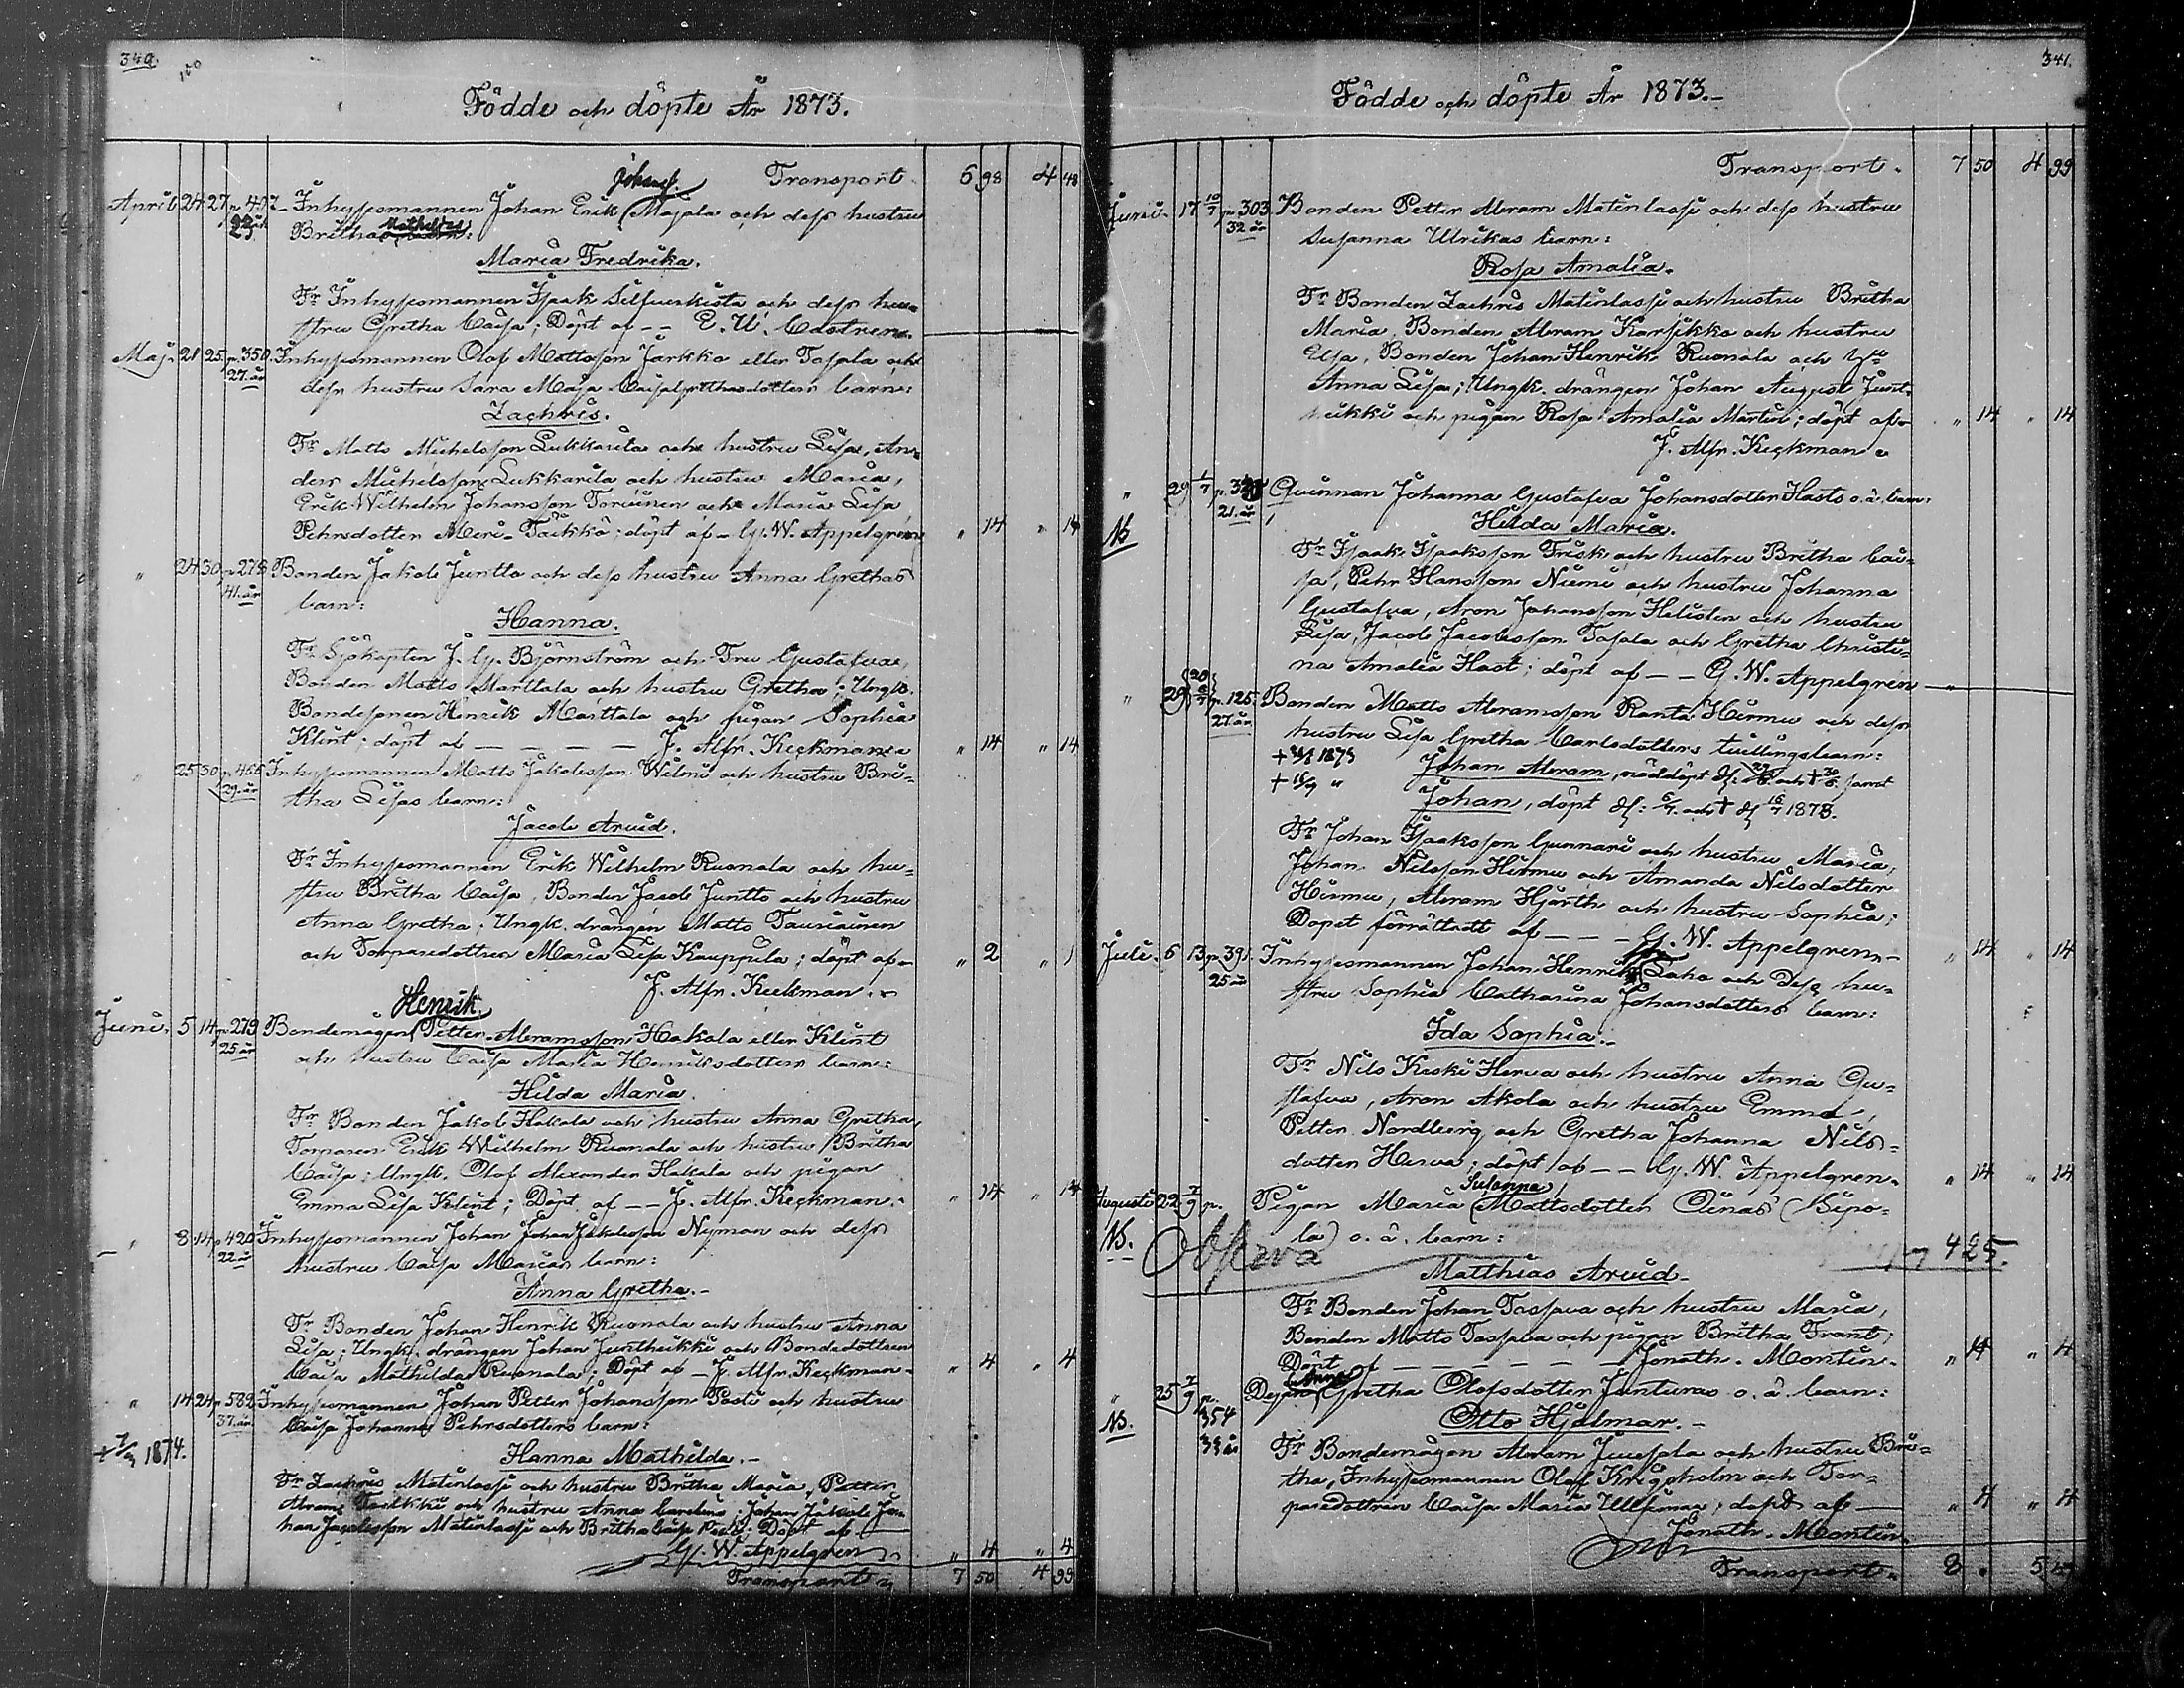 340.
Födde och döpte År 1873.
Transport 6 98 4 48
Johansf.
April 24 27 p. 407 Inhysesmannen Johan Erik Majala och dess hustru
Brithas Mathildas barn:
Maria Fredrika.
Fr Inhysesmannen Isaak Silfverkista och dess hu-
stru Gretha Caisa; Döpt af -- E. U. Castren.
Maj. 21 25 p. 350. Inhysesmannen Olof Mattsson Jarkko eller Tapala och
27. år
dess hustru Sara Maja Caisa Grethasdotters barn:
Zachris.
Fr Matts Michelsson Lukkarila och hustru Lisa, An-
ders Michelsson Lukkarila och hustru Maria,
Erik Wilhelm Johansson Torvinen och Maria Lisa
Pehrsdotter Meri-Täikkö; döpt af – G. W. Appelgren „ 14 „ 14
„ 24 30 p. 278 Bonden Jakob Juntto och dess hustru Anna Grethas
41. år
barn:
Hanna.
Fr Sjökapten J. G. Björnström och Fru Gustafva,
Bonden Matts Marttala och hustru Gretha; Ungk.
Bondesonen Henrik Marttala och pigan Sophia
Klint; döpt af — — — — J. Alfr. Keckman „ 14 „ 14
„ 25 30 p. 466 Inhysesmannen Matts Jakobsson Wilmi och hustru Bri-
29. år
tha Lisas barn:
Jacob Arvid.
Fr Inhysesmannen Erik Wilhelm Ruonala och hu-
stru Britha Caisa, Bonden Jacob Juntto och hustru
Anna Gretha; Ungk. drängen Matts Tauriainen
och Torparedottren Maria Lisa Kauppila; döpt af „ 2 „ 1
J. Alfr. Keckman.
Henrik.
Juni. 5 14 p. 279 Bondemågen Petter Abramsson Hakala eller Klint
25 år
och hustru Caisa Maria Henriksdotters barn:
Hilda Maria.
Fr Bonden Jakob Hakala och hustru Anna Gretha,
Torparen Erik Wilhelm Ruonala och hustru Britha
Caisa; Ungk. Olof Alexander Hakala och pigan
Emma Lisa Klint; Döpt af -- J. Alfr. Keckman. „ 14 „ 14
„ 8 14 p. 420 Inhysesmannen Johan Johan Jakobsson Nyman och dess
22 år
hustru Caisa Marias barn:
Anna Gretha.
Fr Bonden Johan Henrik Ruonala och hustru Anna
Lisa; Ungk. drängen Johan Junthukki och Bondedottren
Caisa Mathilda Ruonala; Döpt af – J. Alfr. Keckman „ 4 „ 4
„ 14 24 p. 582 Inhysesmannen Johan Petter Johansson Posti och hustru
37. år
Caisa Johanna Pehrsdotters barn:
1874.
Hanna Mathilda.
Fr Zachris Matinlassi och hustru Britha Maria, Petter
Abram och hustru Anna Carolina; Johan Jakob Jo-
han Jacobsson Matinlassi och Britha Caisa Posti; Döpt af
G. W. Appelgren „ 4 „ 4
Transport 7 50 4 99
341.
Födde och döpte År 1873.
Transport. 7 50 4 99
Juni. 17 10/7 p. 303 Bonden Petter Abram Matinlassi och dess hustru
32 år
Susanna Ulrikas barn:
Rosa Amalia.
Fr Bonden Zachris Matinlassi och hustru Britha
Maria, Bonden Abram Karsikko och hustru
Elsa, Bonden Johan Henrik Ruonala och hu
Anna Lisa; Ungk. drängen Johan August Junt-
hukki och pigan Rosa Amalia Martin; döpt af „ 14 „ 14
J. Alfr. Keckman
„ 29 1/7 Qvinnan Johanna Gustafva Johansdotter Hasts o. ä. barn:
21. år
NB
Hilda Maria.
Fr Isaak Isaksson Frisk och hustru Britha Cai-
sa, Pehr Hansson Niemi och hustru Johanna
Gustafva, Aron Johansson Helisten och hustru
Lisa, Jacob Jacobsson Tapala och Gretha Christi-
na Amalia Hast; döpt af -- G. W. Appelgren
„ 29 p. 125. Bonden Matts Abramsson Ranta Hirmu och dess
27. år
hustru Lisa Gretha Carlsdotters tvillingsbarn:
Johan Abram, nöddöpt
Johan, döpt 1873.
Fr Johan Isaksson Gunnari och hustru Maria,
Johan Nilsson Hirmu och Amanda Nilsdotter
Hirmu, Abram Hjorth och hustru Sophia;
Dopet förrättadt af --- G. W. Appelgren „ 14 „ 14
Juli. 6 13 p. 391. Inhysesmannen Johan Henrik Laho och Dess hu-
25 år
stru Sophia Catharina Johansdotters barn:
Ida Sophia.
Fr Nils Keski Herva och hustru Anna Gu-
stafva, Aron Akola och hustru Emma,
Petter Nordberg och Gretha Johanna Nils-
dotter Herva; döpt af -- G. W. Appelgren. „ 14 „ 14
Susanna
Augusti 22 7/9 p. Pigan Maria Mattsdotter Oinas (Sipo-
NB. la) o. ä. barn:
Observa 425.
Matthias Arvid.
Fr Bonden Johan Tossava och hustru Maria,
Bonden Matts Tossava och pigan Britha Frant;
Döpt af — — — — — Jonath. Montin. „ 4 „ 4
Anna
„ 25 7/9 p. Dejan Gretha Olofsdotter Junturas o. ä. barn:
NB. 354
Otto Hjalmar.
Fr Bondemågen Abram Juuspla och hustru Bri-
tha, Inhysesmannen Olof Krigsholm och Tor-
paredottren Caisa Maria Ullsina; döpt af — „ 4 „ 4
Jonath. Montin.
Transport. 8